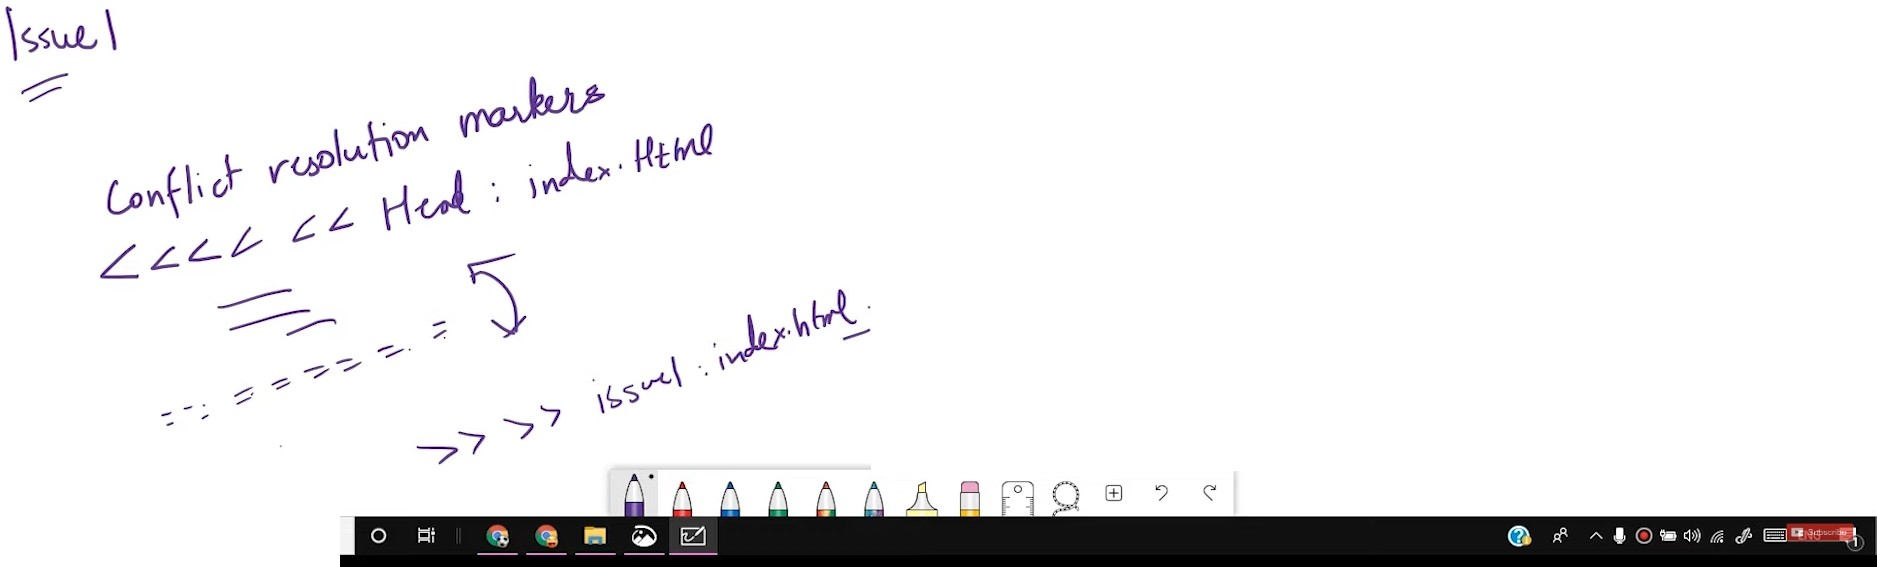 Issue1
Conflict resolution markers
<<<< << Head : index.Html
= = = = = = = = = =
>> >> issue1 : index.html.
Subscribe